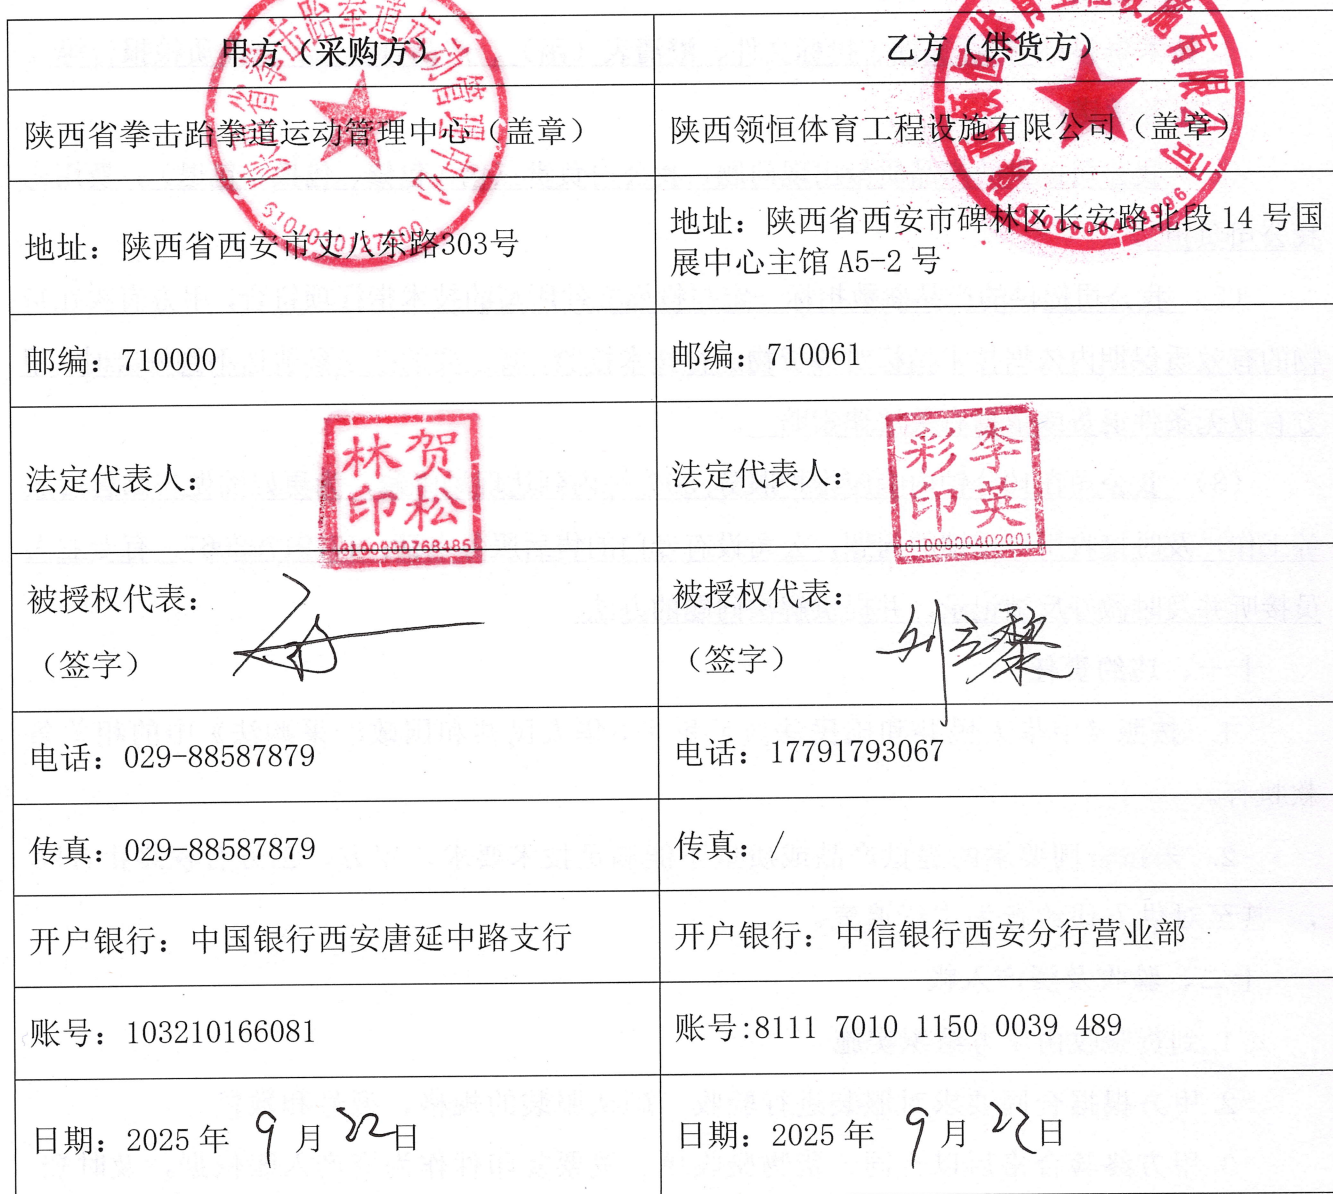 甲方（采购方）
乙方（供货方）
陕西省拳击跆拳道运动管理中心（盖章）
陕西领恒体育工程设施有限公司（盖章）
地址：陕西省西安市丈八东路303号
地址：陕西省西安市碑林区长安路北段 14 号国
展中心主馆 A5-2 号
邮编：710000
邮编：710061
法定代表人：
贺松林印
6100000768485
法定代表人：
李英彩印
6100000402001
被授权代表：
（签字）
被授权代表：
（签字）
电话：029-88587879
电话：17791793067
传真：029-88587879
传真：/
开户银行：中国银行西安唐延中路支行
开户银行：中信银行西安分行营业部
账号：103210166081
账号:8111 7010 1150 0039 489
日期：2025 年 9 月 22 日
日期：2025 年 9 月 22 日